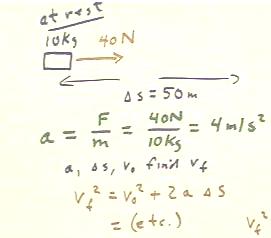 at rest
10kg 40N
Δs = 50m
a = F/m = 40N/10kg = 4 m/s²
a, Δs, v₀ find v_f
v_f² = v₀² + 2a Δs
= (etc.) v_f²